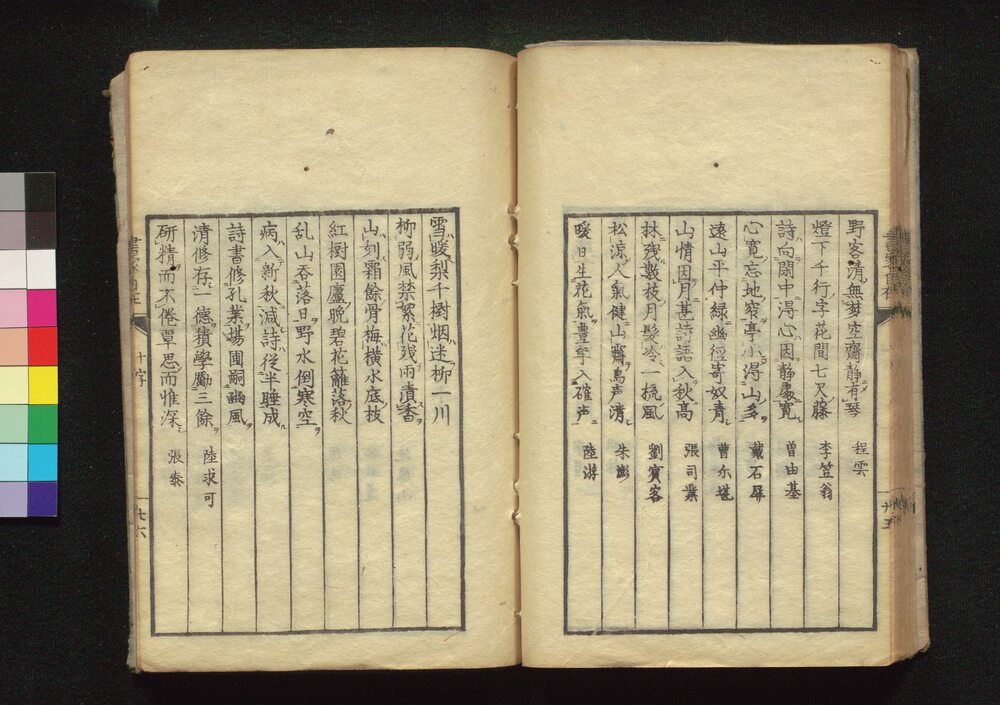 野客清無夢空齋静有琴 程雲
燈下千行字花間七尺藤 李笠翁
詩向閑中淂心因静處寛 曽由基
心寛忘地窄亭小淂山多 戴石屏
遠山平仲緑幽徑寄奴青 曹尓堪
山情因月甚詩語入秋高 張司業
林残數枝月髪冷一梳風 劉賓客
松涼人氣健山霽鳥声清 朱澎
暖日生花氣豊年入碓声 陸游
雪暖梨千樹烟迷柳一川
柳弱風禁絮花残雨漬香
山刻霜餘骨梅横水底枝
紅樹園廬晩碧花籬落秋
乱山呑落日野水倒寒空
病入新秋減詩従半睡成
詩書修孔業場圃嗣豳風
清修存一德積學勵三餘 陸求可
研精而不倦覃思而雅深 張泰
十字
七六